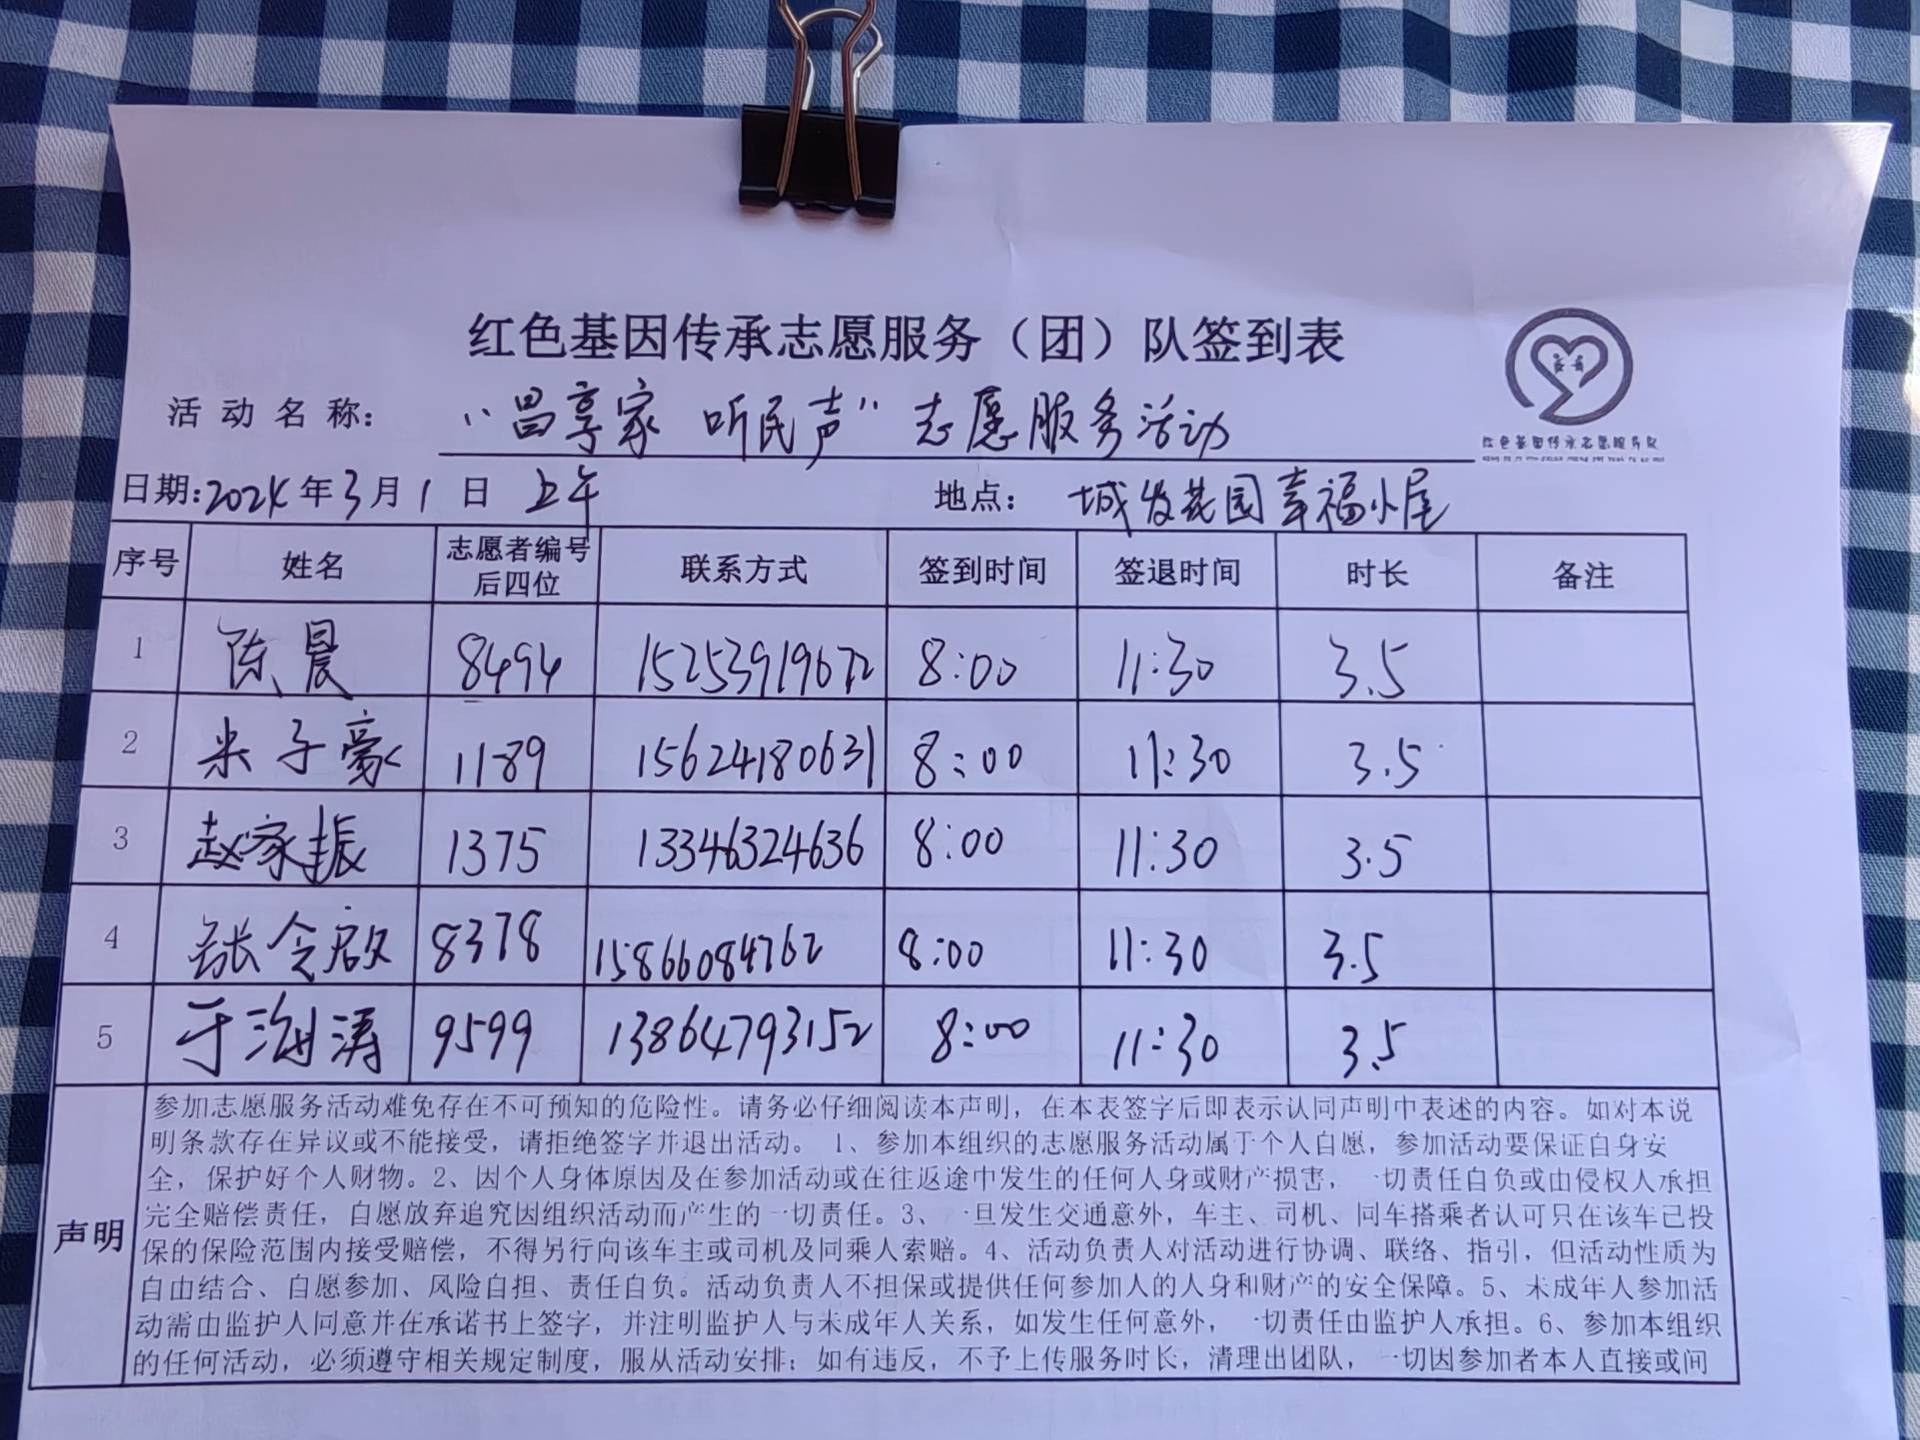 红色基因传承志愿服务（团）队签到表
活动名称： “昌享家 听民声”志愿服务活动
红色基因传承志愿服务队
日期:2024年3月1日 上午 地点： 城发花园幸福小屋
序号 姓名 志愿者编号后四位 联系方式 签到时间 签退时间 时长 备注
1 陈晨 8494 15253919672 8:00 11:30 3.5
2 米子豪 1189 15624180631 8:00 11:30 3.5
3 赵家振 1375 13346324636 8:00 11:30 3.5
4 张令啟 8378 15866084762 8:00 11:30 3.5
5 于海涛 9599 13864793152 8:00 11:30 3.5
声明
参加志愿服务活动难免存在不可预知的危险性。请务必仔细阅读本声明，在本表签字后即表示认同声明中表述的内容。如对本说
明条款存在异议或不能接受，请拒绝签字并退出活动。 1、参加本组织的志愿服务活动属于个人自愿，参加活动要保证自身安
全，保护好个人财物。2、因个人身体原因及在参加活动或在往返途中发生的任何人身或财产损害，一切责任自负或由侵权人承担
完全赔偿责任，自愿放弃追究因组织活动而产生的一切责任。3、一旦发生交通意外，车主、司机、同车搭乘者认可只在该车已投
保的保险范围内接受赔偿，不得另行向该车主或司机及同乘人索赔。4、活动负责人对活动进行协调、联络、指引，但活动性质为
自由结合、自愿参加、风险自担、责任自负。活动负责人不担保或提供任何参加人的人身和财产的安全保障。5、未成年人参加活
动需由监护人同意并在承诺书上签字，并注明监护人与未成年人关系，如发生任何意外，一切责任由监护人承担。6、参加本组织
的任何活动，必须遵守相关规定制度，服从活动安排；如有违反，不予上传服务时长，清理出团队，一切因参加者本人直接或间